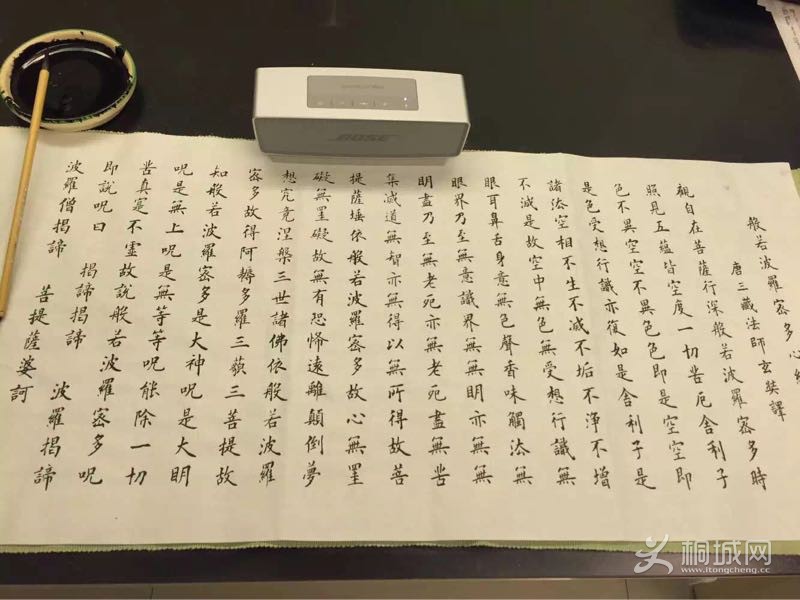 般若波羅密多心經
唐三藏法師玄奘譯
觀自在菩薩行深般若波羅密多時
照見五蘊皆空度一切苦厄舍利子
色不異空空不異色色即是空空即
是色受想行識亦復如是舍利子是
諸法空相不生不滅不垢不淨不增
不減是故空中無色無受想行識無
眼耳鼻舌身意無色聲香味觸法無
眼界乃至無意識界無無明亦無無
明盡乃至無老死亦無老死盡無苦
集滅道無智亦無得以無所得故菩
提薩埵依般若波羅密多故心無罣
礙無罣礙故無有恐怖遠離顛倒夢
想究竟涅槃三世諸佛依般若波羅
密多故得阿耨多羅三藐三菩提故
知般若波羅密多是大神呪是大明
呪是無上呪是無等等呪能除一切
苦真寔不虛故說般若波羅密多呪
即說呪曰 揭諦揭諦 波羅揭諦
波羅僧揭諦 菩提薩婆訶
BOSE
桐城网
www.itongcheng.cc